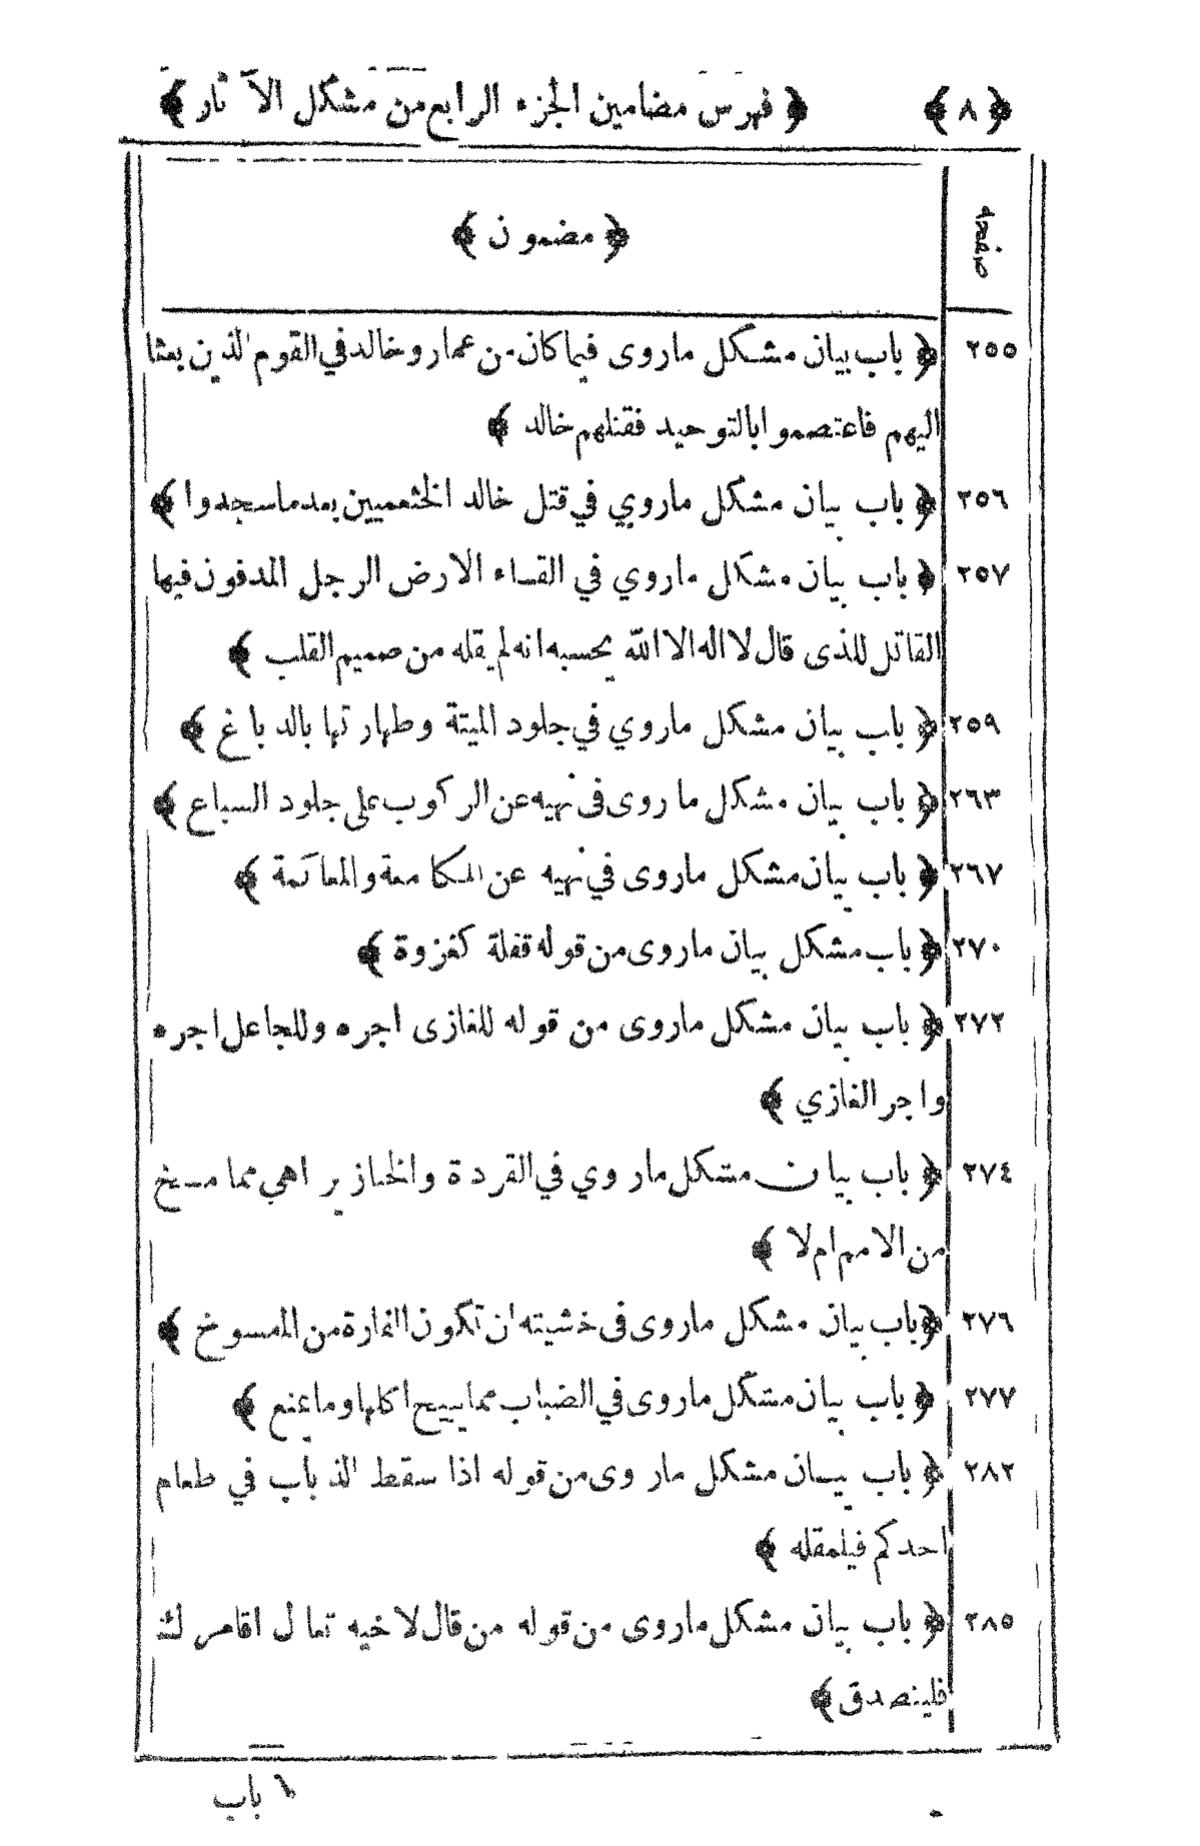 ﴿ ٨ ﴾ ﴿ فهرس مضامين الجزء الرابع من مشكل الآثار ﴾
صفحه ﴿ مضمون ﴾
٢٥٥ ﴿ باب بيان مشكل ماروى فيما كان من عمار وخالد في القوم الذين بعثا
اليهم فاعتصموا بالتوحيد فقتلهم خالد ﴾
٢٥٦ ﴿ باب بيان مشكل ماروي في قتل خالد الخثعميين بعد ما سجدوا ﴾
٢٥٧ ﴿ باب بيان مشكل ماروي في القاء الارض الرجل المدفون فيها
القاتل للذى قال لا اله الا الله يحسبه انه لم يقله من صميم القلب ﴾
٢٥٩ ﴿ باب بيان مشكل ماروي في جلود الميتة وطهارتها بالدباغ ﴾
٢٦٣ ﴿ باب بيان مشكل ماروى فى نهيه عن الركوب على جلود السباع ﴾
٢٦٧ ﴿ باب بيان مشكل ماروى في نهيه عن المكامعة والمعاكمة ﴾
٢٧٠ ﴿ باب مشكل بيان ماروى من قوله قفلة كغزوة ﴾
٢٧٢ ﴿ باب بيان مشكل ماروى من قوله للغازى اجره وللجاعل اجره
واجر الغازي ﴾
٢٧٤ ﴿ باب بيان مشكل ماروي في القردة والخنازير اهي مما مسخ
من الامم ام لا ﴾
٢٧٦ ﴿ باب بيان مشكل ماروى فى خشيته ان تكون الفارة من المسوخ ﴾
٢٧٧ ﴿ باب بيان مشكل ماروى في الضباب مما يبيح اكلها وما يمنع ﴾
٢٨٢ ﴿ باب بيان مشكل ماروى من قوله اذا سقط الذباب في طعام
احدكم فيلمقله ﴾
٢٨٥ ﴿ باب بيان مشكل ماروى من قوله من قال لاخيه تعال اقامرك
فليتصدق ﴾
باب